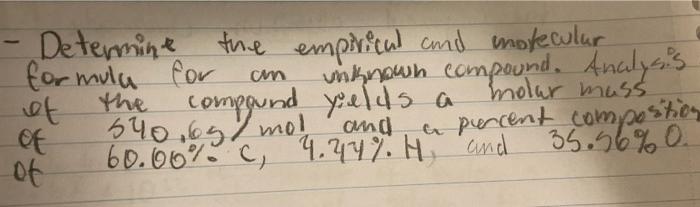 - Determine the empirical and molecular
formula for an unknown compound. Analysis
of the compound yields a molar mass
of 540.6g/mol and a percent composition
of 60.00% C, 4.44% H, and 35.56% O.